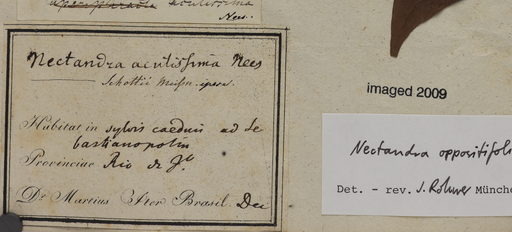 acutissima
Nees.
Nectandra acutissima Nees
Schottii Meisn. ipse.
Habitat in sylvis caeduis ad Se
bastianopolin
Provinciae Rio de J.
Dr. Martius Iter Brasil. Dec
imaged 2009
Nectandra oppositifoli
Det. - rev. J. Rohwer Münche